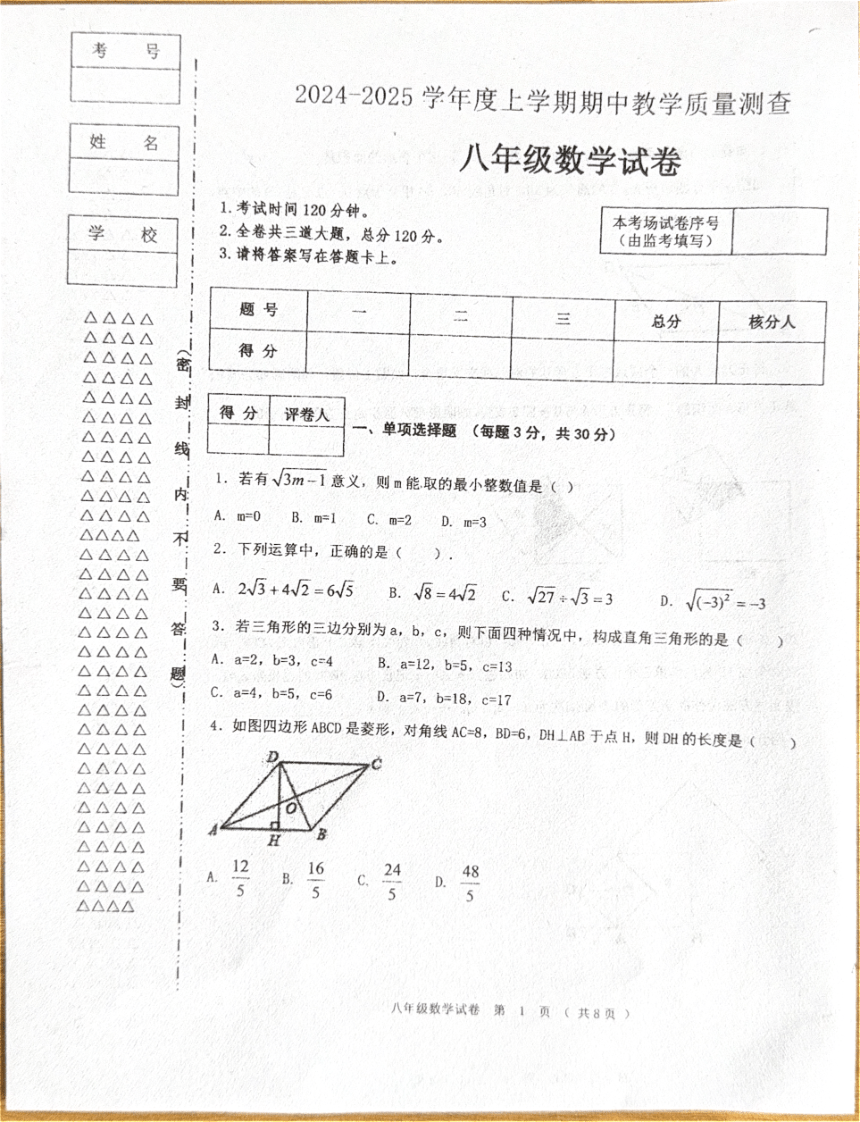 考 号
姓 名
学 校
△△△△
△△△△
△△△△
△△△△
△△△△
△△△△
△△△△
△△△△
△△△△
△△△△
△△△△
△△△△
△△△△
△△△△
△△△△
△△△△
△△△△
△△△△
△△△△
△△△△
△△△△
△△△△
△△△△
△△△△
△△△△
△△△△
△△△△
△△△△
△△△△
△△△△
△△△△
(密封线内不要答题)
2024-2025 学年度上学期期中教学质量测查
八年级数学试卷
1.考试时间 120 分钟。
2.全卷共三道大题，总分 120 分。
3.请将答案写在答题卡上。
本考场试卷序号
（由监考填写）
题 号 一 二 三 总分 核分人
得 分
得 分 评卷人
一、单项选择题 （每题 3 分，共 30 分）
1. 若有 √(3m-1) 意义，则 m 能取的最小整数值是（ ）
A. m=0 B. m=1 C. m=2 D. m=3
2. 下列运算中，正确的是（ ）.
A. 2√3+4√2=6√5 B. √8=4√2 C. √27÷√3=3 D. √(-3)²=-3
3. 若三角形的三边分别为 a，b，c，则下面四种情况中，构成直角三角形的是（ ）
A. a=2，b=3，c=4 B. a=12，b=5，c=13
C. a=4，b=5，c=6 D. a=7，b=18，c=17
4. 如图四边形 ABCD 是菱形，对角线 AC=8，BD=6，DH⊥AB 于点 H，则 DH 的长度是（ ）
D C
O
A H B
A. 12/5 B. 16/5 C. 24/5 D. 48/5
八年级数学试卷 第 1 页 （共 8 页）